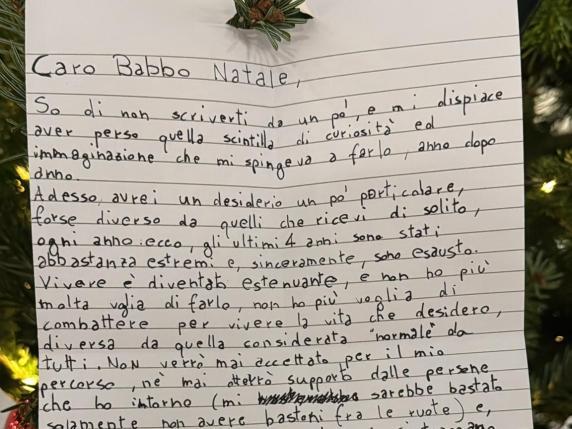 Caro Babbo Natale,
So di non scriverti da un po', e mi dispiace
aver perso quella scintilla di curiosità ed
immaginazione che mi spingeva a farlo, anno dopo
anno.
Adesso, avrei un desiderio un po' particolare,
forse diverso da quelli che ricevi di solito,
ogni anno: ecco, gli ultimi 4 anni sono stati
abbastanza estremi e, sinceramente, sono esausto.
Vivere è diventato estenuante, e non ho più
molta voglia di farlo, non ho più voglia di
combattere per vivere la vita che desidero,
diversa da quella considerata "normale" da
tutti. Non verrò mai accettato per il mio
percorso, né mai otterrò supporto dalle persone
che ho intorno (mi sarebbe bastato
solamente non avere bastoni fra le ruote) e,